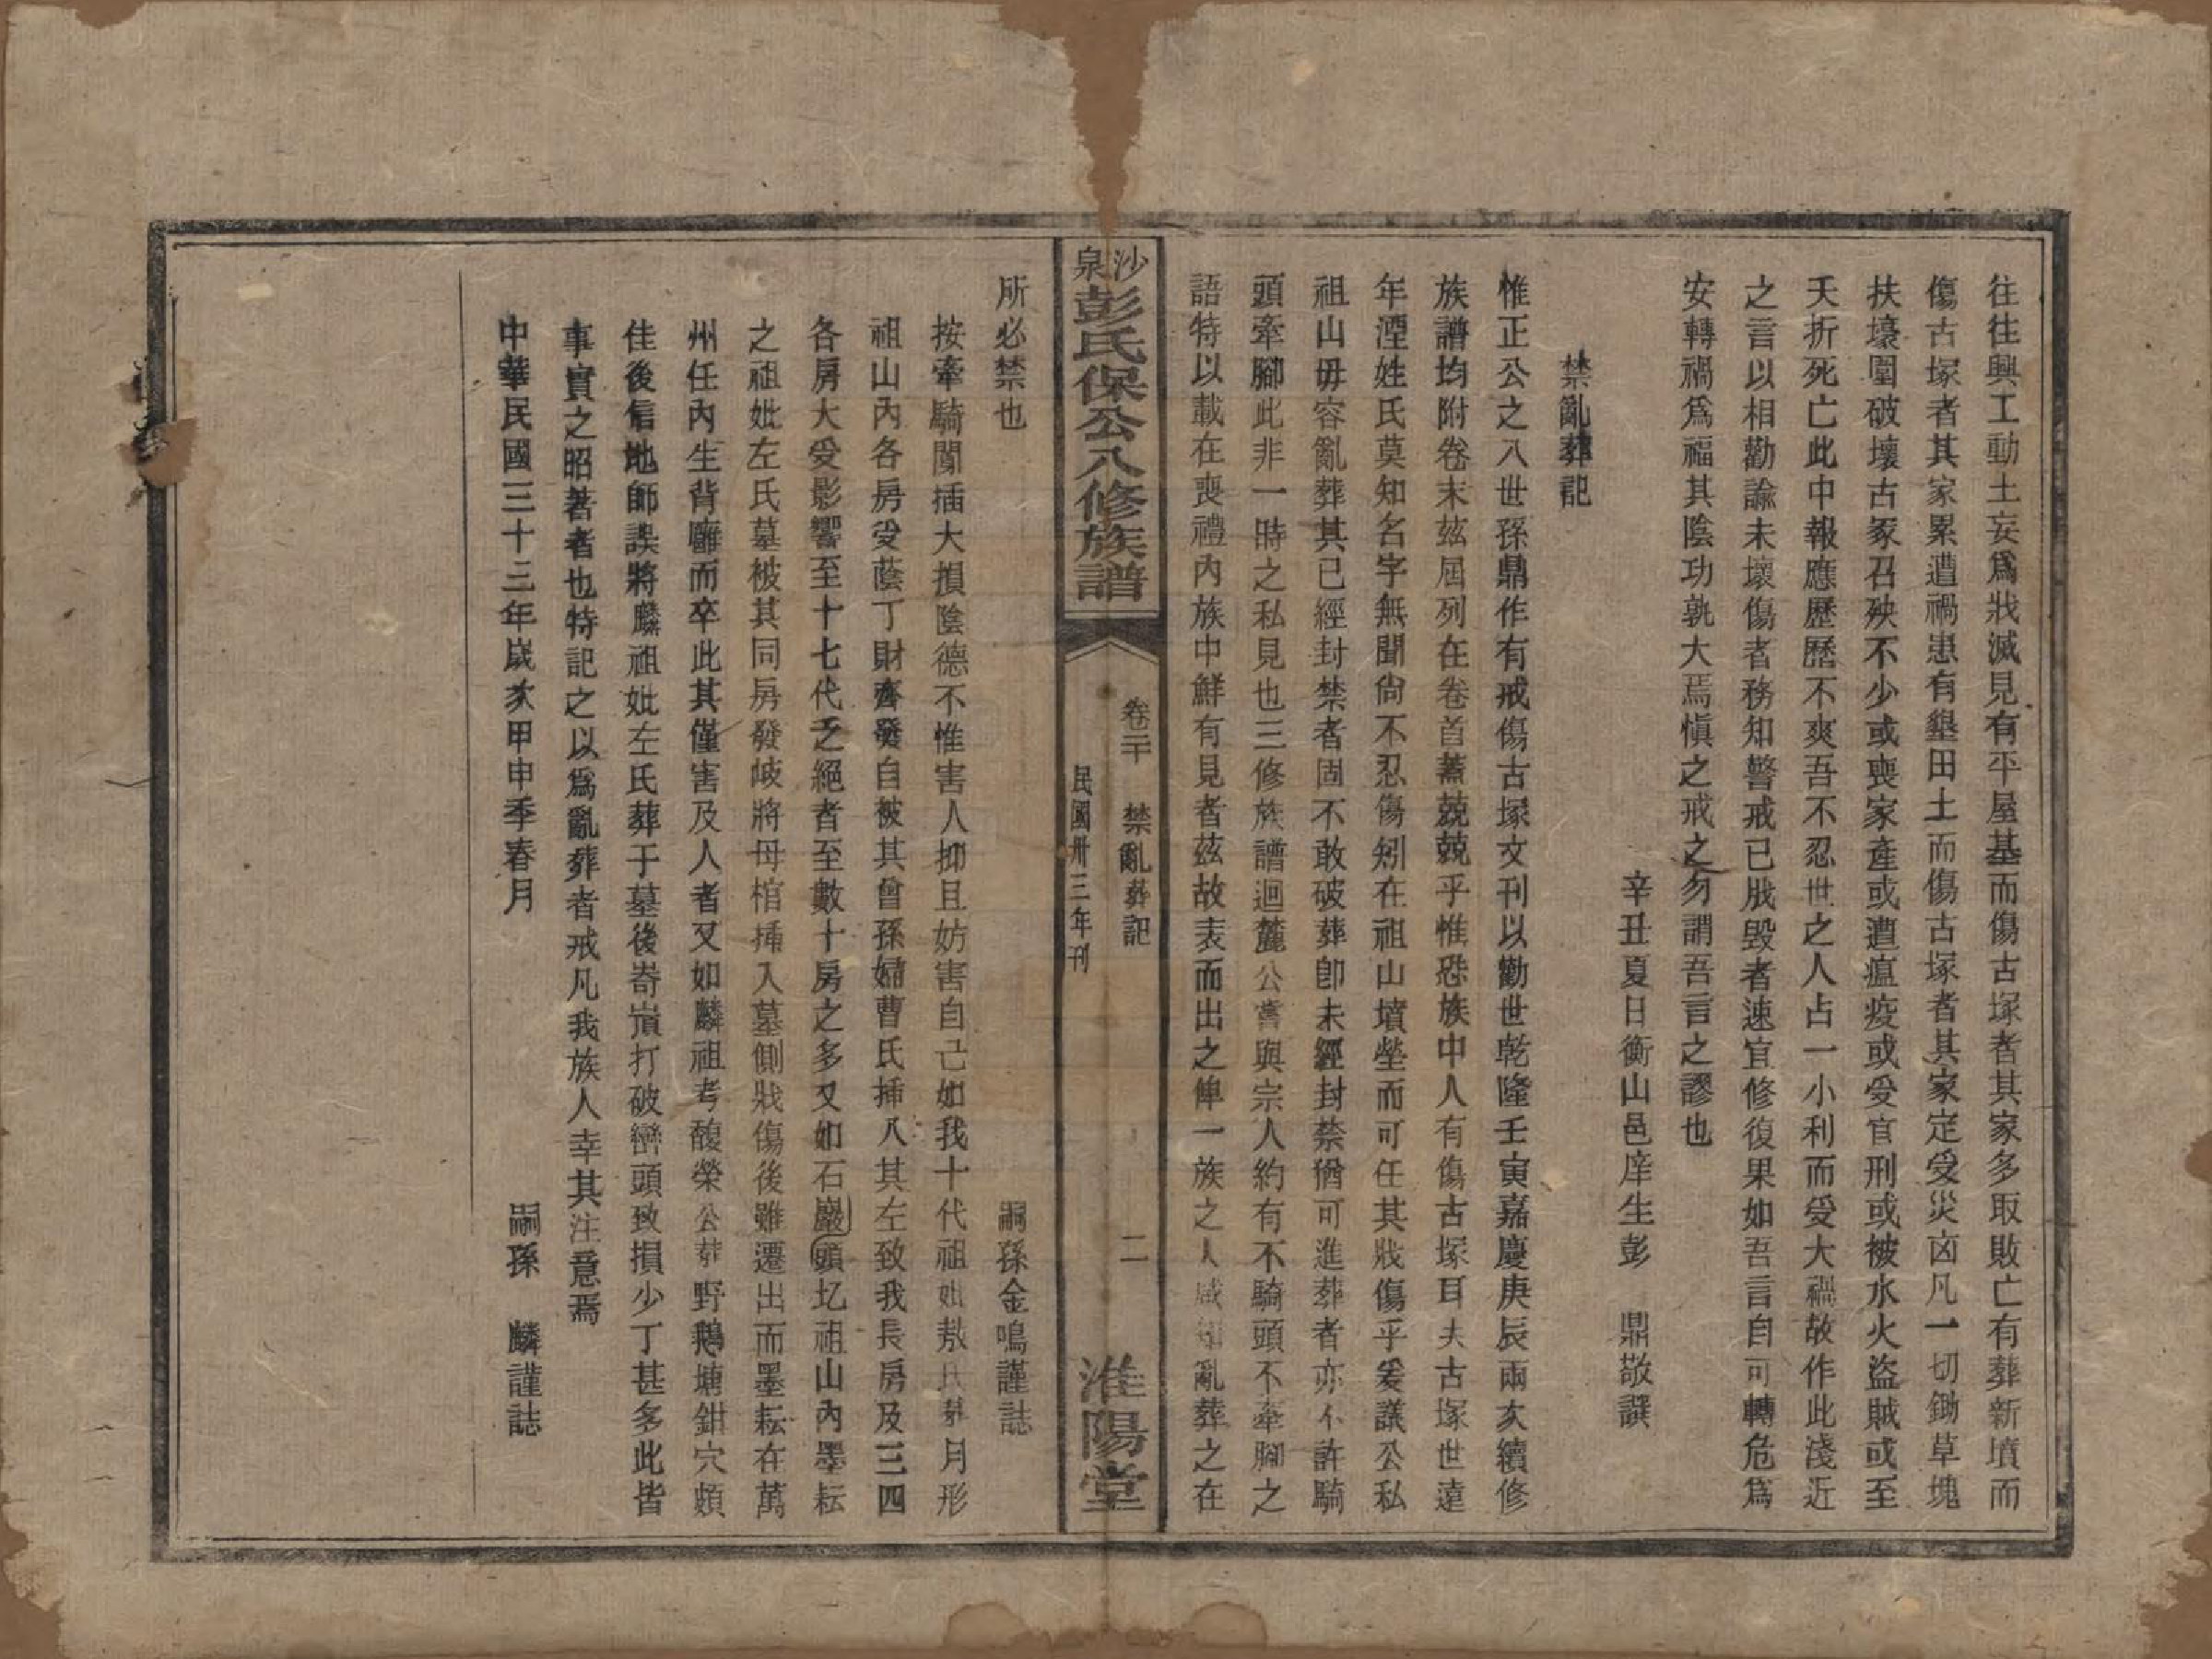 往往興工動土妄爲戕滅見有平屋基而傷古塚者其家多取敗亡有葬新墳而
傷古塚者其家累遭禍患有墾田土而傷古塚者其家定受災凶凡一切鋤草塊
扶壕圍破壞古冢召殃不少或喪家產或遭瘟疫或受官刑或被水火盜賊或至
夭折死亡此中報應歷歷不爽吾不忍世之人占一小利而受大禍故作此淺近
之言以相勸諭未壞傷者務知警戒已戕毀者速宜修復果如吾言自可轉危爲
安轉禍爲福其陰功孰大焉愼之戒之勿謂吾言之謬也
辛丑夏日衡山邑庠生彭 鼎敬譔
禁亂葬記
惟正公之八世孫鼎作有戒傷古塚文刊以勸世乾隆壬寅嘉慶庚辰兩次續修
族譜均附卷末玆屆列在卷首蓋兢兢乎惟恐族中人有傷古塚耳夫古塚世遠
年湮姓氏莫知名字無聞尙不忍傷矧在祖山墳塋而可任其戕傷乎爰議公私
祖山毋容亂葬其已經封禁者固不敢破葬卽未經封禁猶可進葬者亦不許騎
頭牽腳此非一時之私見也三修族譜迴麓公嘗與宗人約有不騎頭不牽腳之
語特以載在喪禮內族中鮮有見者玆故表而出之俾一族之人咸知亂葬之在
沙泉彭氏保公八修族譜
卷二十 禁亂葬記 二
民國卅三年刊
淮陽堂
所必禁也
嗣孫金鳴謹誌
按牽騎闖插大損陰德不惟害人抑且妨害自己如我十代祖妣敖氏茅月形
祖山內各房受蔭丁財齊發自被其曾孫婦曹氏揷入其左致我長房及三四
各房大受影響至十七代乏絕者至數十房之多又如石巖頭圪祖山內墨耘
之祖妣左氏墓被其同房發岐將母棺揷入墓側戕傷後雖遷出而墨耘在萬
州任內生背癰而卒此其僅害及人者又如麟祖考馥榮公葬野鵝塘鉗穴頗
佳後信地師誤將麟祖妣左氏葬于墓後嵜嵿打破巒頭致損少丁甚多此皆
事實之昭著者也特記之以爲亂葬者戒凡我族人幸其注意焉
中華民國三十三年歲次甲申季春月
嗣孫 麟謹誌